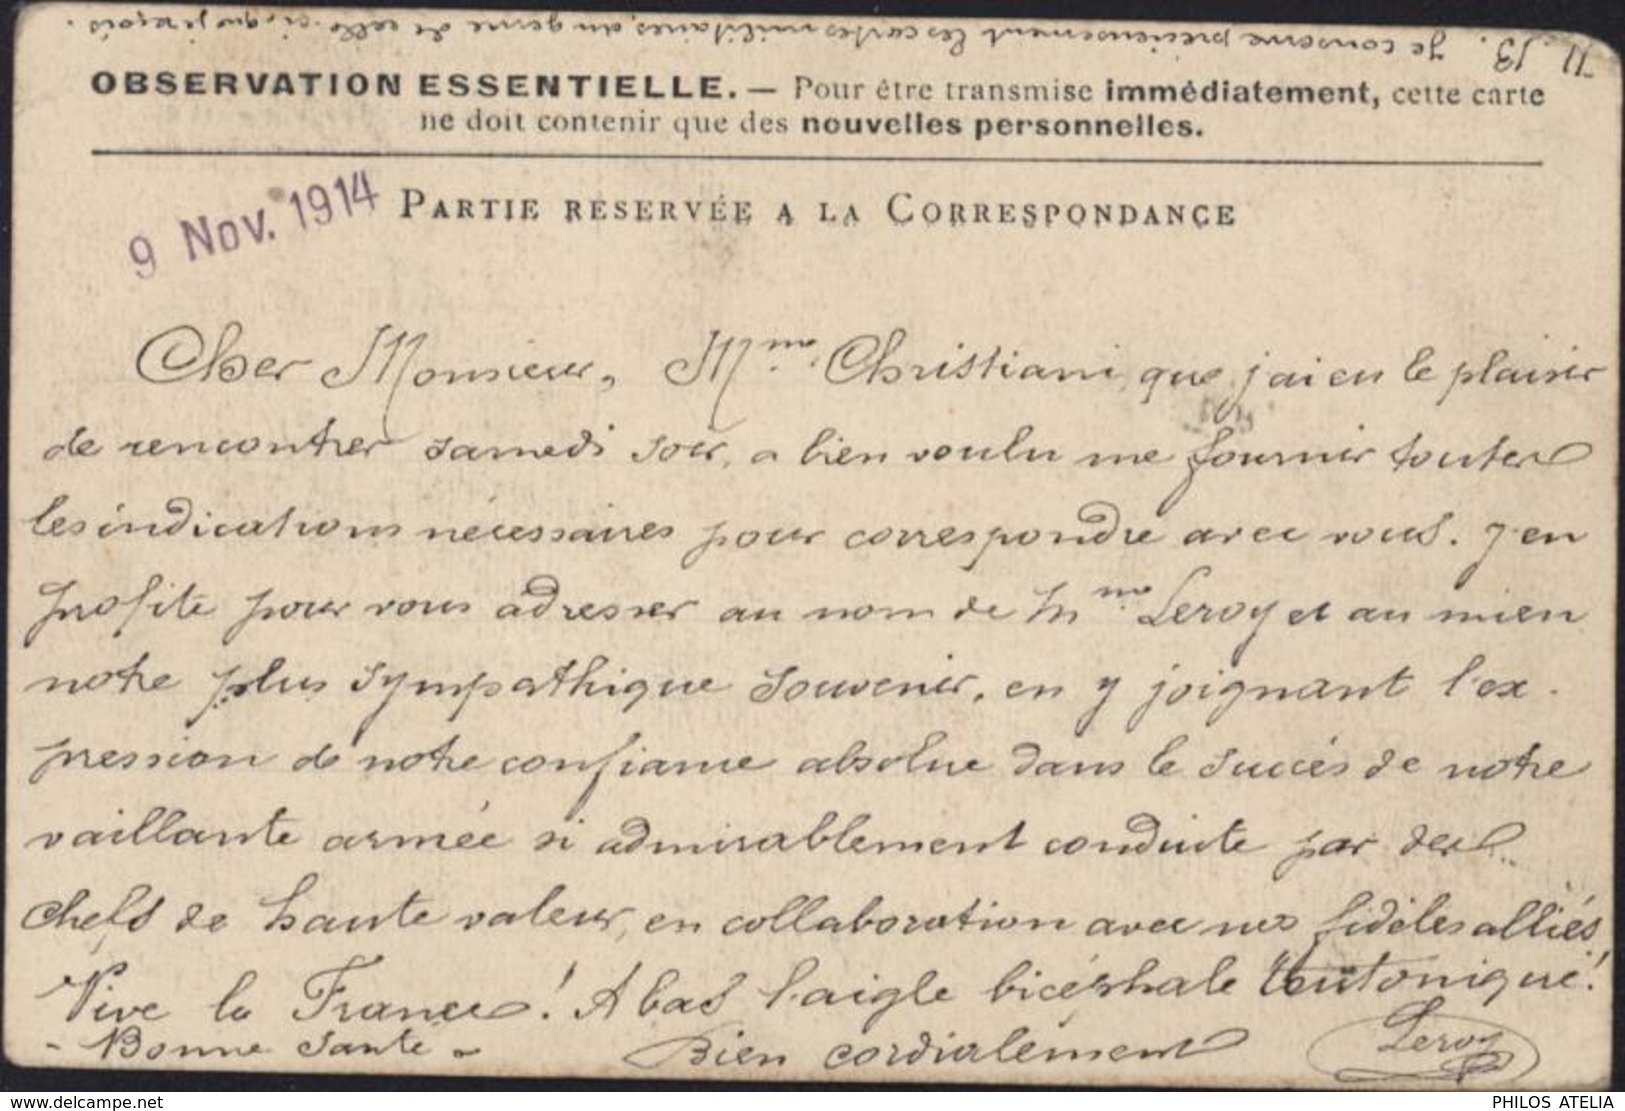 Je conserve précieusement les cartes militaires, du genre de celle-ci, que je reçois.
11. 13.
OBSERVATION ESSENTIELLE. — Pour être transmise immédiatement, cette carte
ne doit contenir que des nouvelles personnelles.
9 Nov. 1914
PARTIE RÉSERVÉE A LA CORRESPONDANCE
Cher Monsieur, Mme Christiani, que j'ai eu le plaisir
de rencontrer samedi soir, a bien voulu me fournir toutes
les indications nécessaires pour correspondre avec vous. J'en
profite pour vous adresser au nom de Mme Leroy et au mien
notre plus sympathique souvenir, en y joignant l'ex-
pression de notre confiance absolue dans le succès de notre
vaillante armée si admirablement conduite par des
chefs de haute valeur, en collaboration avec nos fidèles alliés
Vive la France! A bas l'aigle bicéphale teutonique!
- Bonne santé - Bien cordialement Leroy
delcampe.net
PHILOS ATELIA